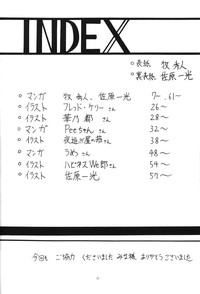 INDEX
○表紙 牧 秀人
○裏表紙 佐原一光
○マンガ 牧 秀人、佐原一光 7〜、61〜
○イラスト フレッド・ケリーさん 26〜
○イラスト 華乃 都さん 28〜
○マンガ Peeちゃん さん 32〜
○イラスト 38〜
○マンガ うめつ さん 48〜
○イラスト ハピネスWe郎さん 54〜
○イラスト 佐原 一光 57〜
今回も ご協力 くださいました みな様 ありがとうございました